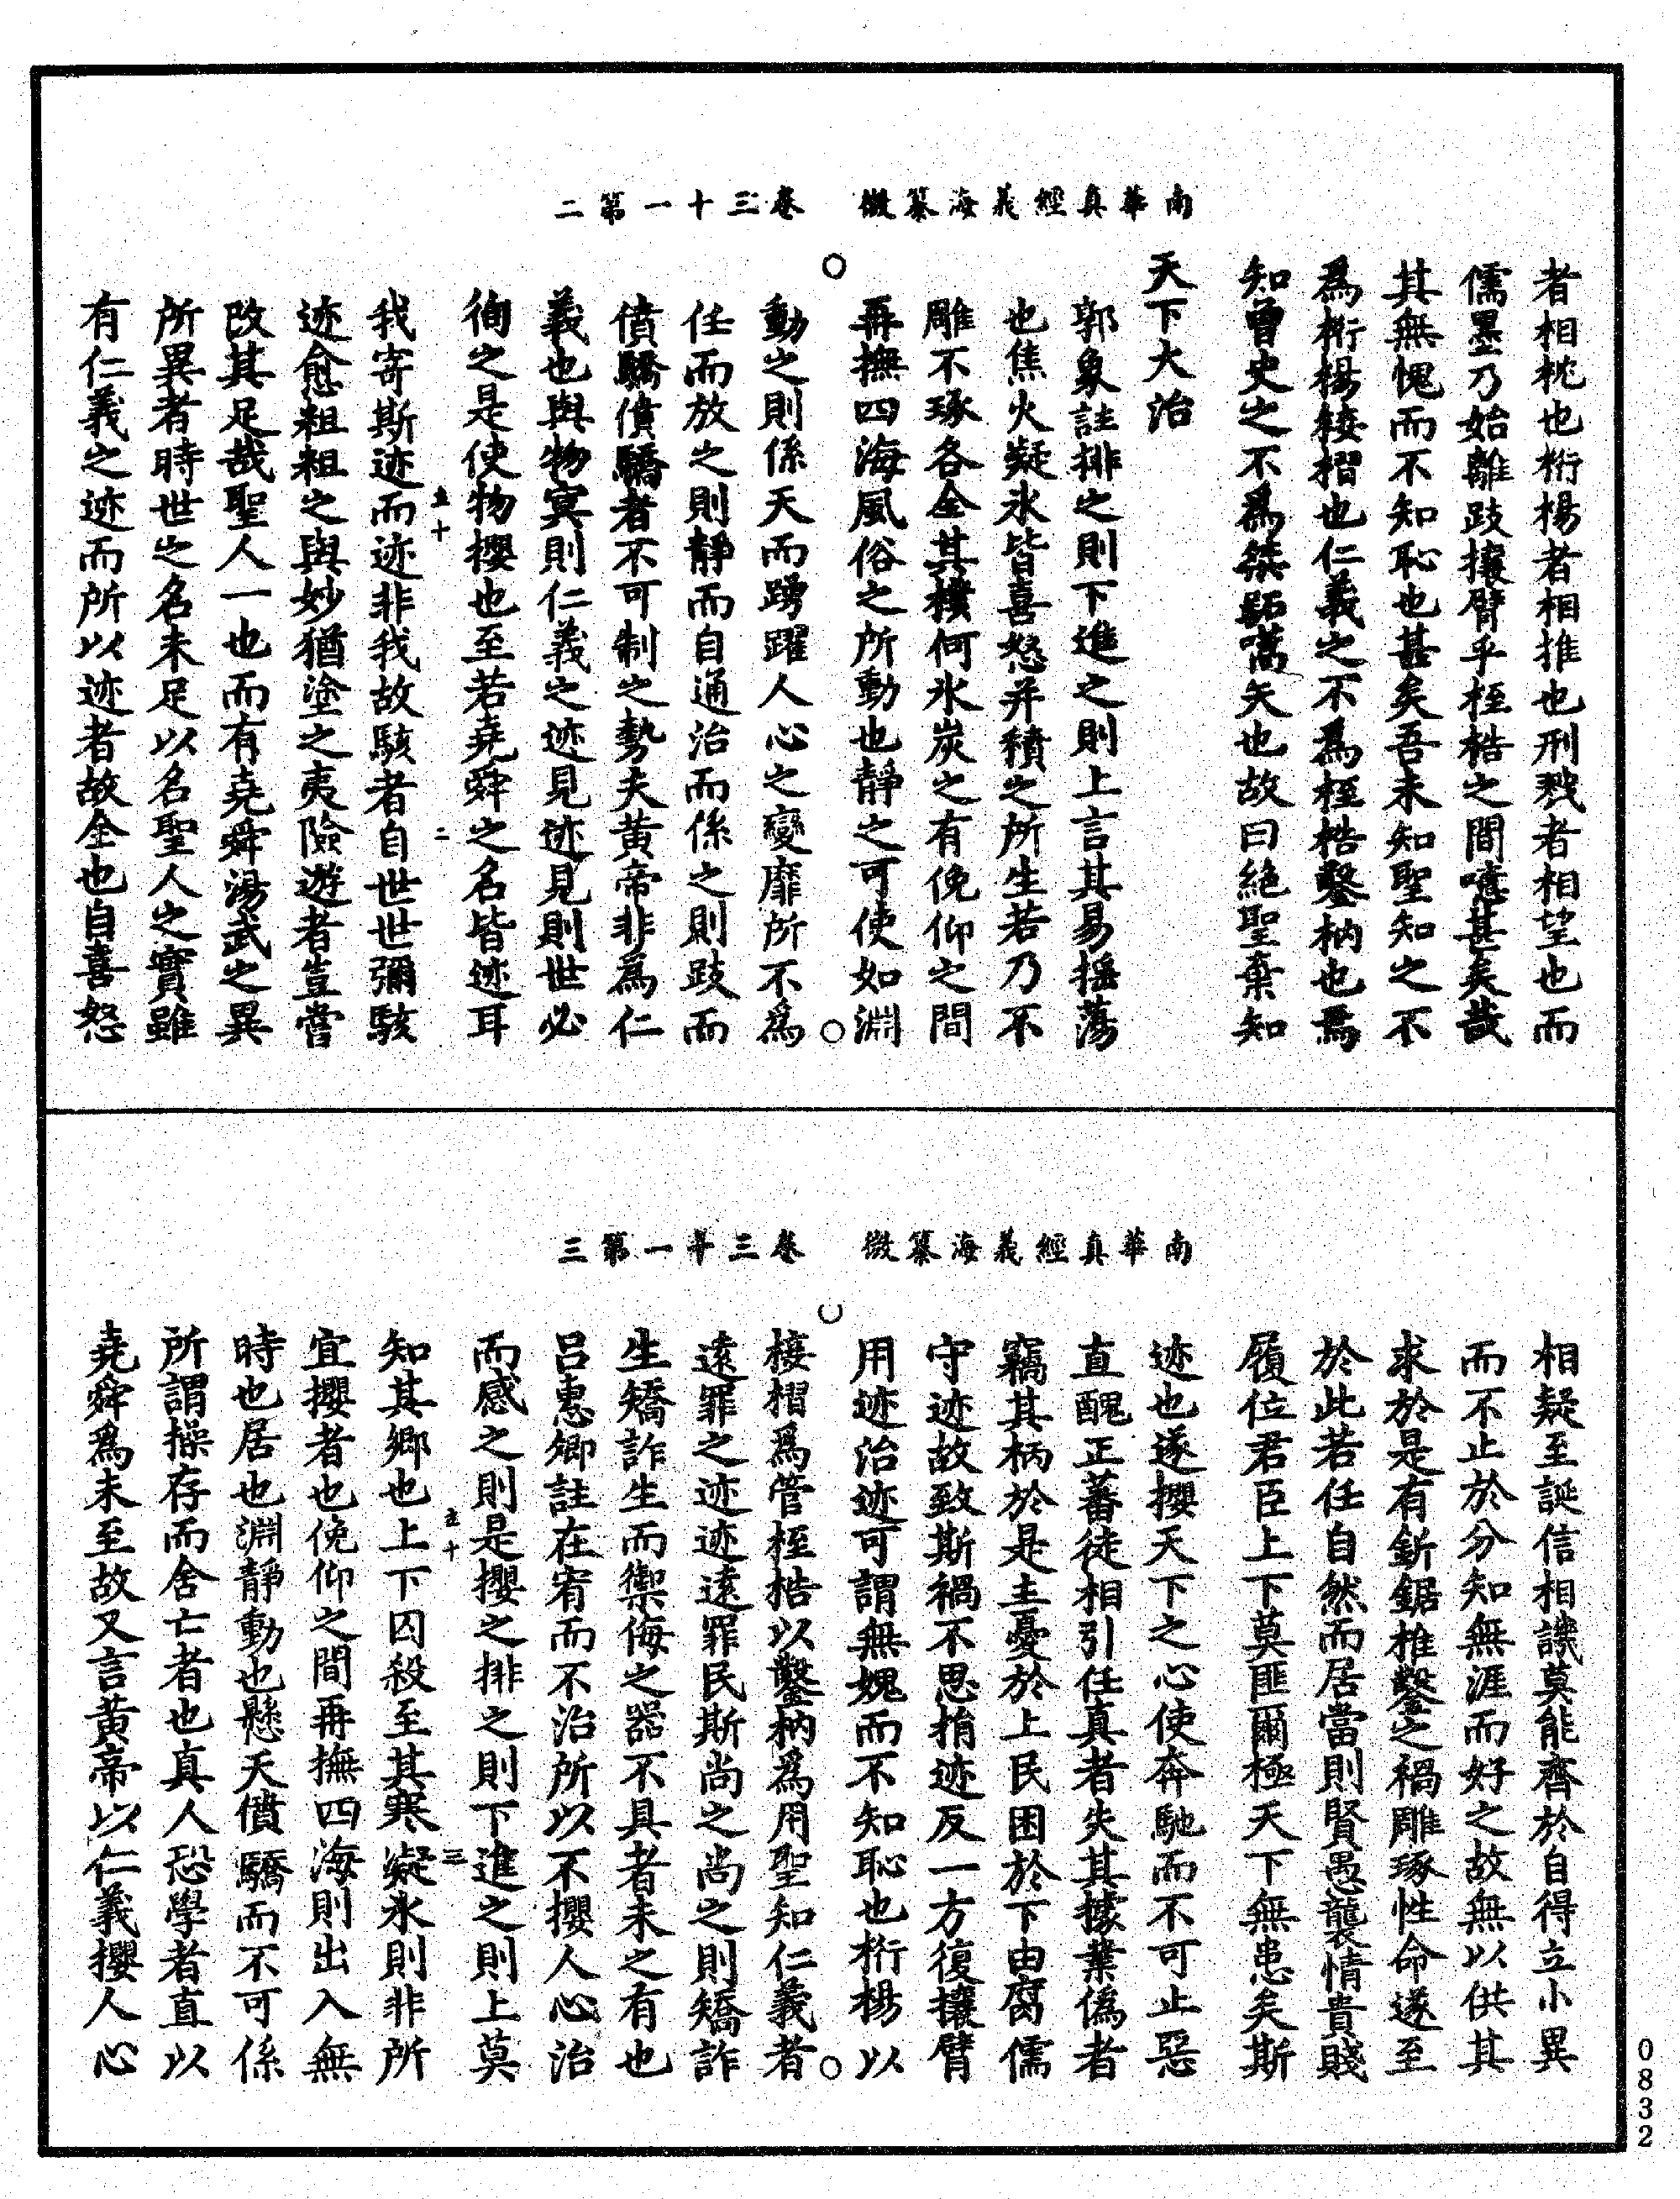 南華真經義海纂微　卷三十一第二
者相枕也桁楊者相推也刑戮者相望也而
儒墨乃始離跂攘臂乎桎梏之間噫甚矣哉
其無愧而不知恥也甚矣吾未知聖知之不
爲桁楊椄槢也仁義之不爲桎梏鑿枘也焉
知曾史之不爲桀跖嚆矢也故曰絶聖棄知
天下大治
郭象註排之則下進之則上言其易搖蕩
也焦火凝氷皆喜怒并積之所生若乃不
雕不琢各全其樸何氷炭之有俛仰之間
再撫四海風俗之所動也靜之可使如淵
動之則係天而踴躍人心之變靡所不爲
任而放之則靜而自通治而係之則跂而
僨驕僨驕者不可制之勢夫黄帝非爲仁
義也與物冥則仁義之迹見迹見則世必
徇之是使物攖也至若堯舜之名皆迹耳
我寄斯迹而迹非我故駭者自世世彌駭
迹愈粗粗之與妙猶塗之夷險遊者豈嘗
改其足哉聖人一也而有堯舜湯武之異
所異者時世之名未足以名聖人之實雖
有仁義之迹而所以迹者故全也自喜怒
五十
二
南華真經義海纂微　卷三十一第三
相疑至誕信相譏莫能齊於自得立小異
而不止於分知無涯而好之故無以供其
求於是有釿鋸椎鑿之禍雕琢性命遂至
於此若任自然而居當則賢愚襲情貴賤
履位君臣上下莫匪爾極天下無患矣斯
迹也遂攖天下之心使奔馳而不可止惡
直醜正蕃徒相引任真者失其據業偽者
竊其柄於是主憂於上民困於下由腐儒
守迹故致斯禍不思捐迹反一方復攘臂
用迹治迹可謂無媿而不知恥也桁楊以
椄槢爲管桎梏以鑿枘爲用聖知仁義者
遠罪之迹迹遠罪民斯尚之尚之則矯詐
生矯詐生而禦侮之器不具者未之有也
吕惠卿註在宥而不治所以不攖人心治
而感之則是攖之排之則下進之則上莫
知其鄉也上下囚殺至其寒凝氷則非所
宜攖者也俛仰之間再撫四海則出入無
時也居也淵靜動也懸天僨驕而不可係
所謂操存而舍亡者也真人恐學者直以
堯舜爲未至故又言黄帝以仁義攖人心
五十
三
0832